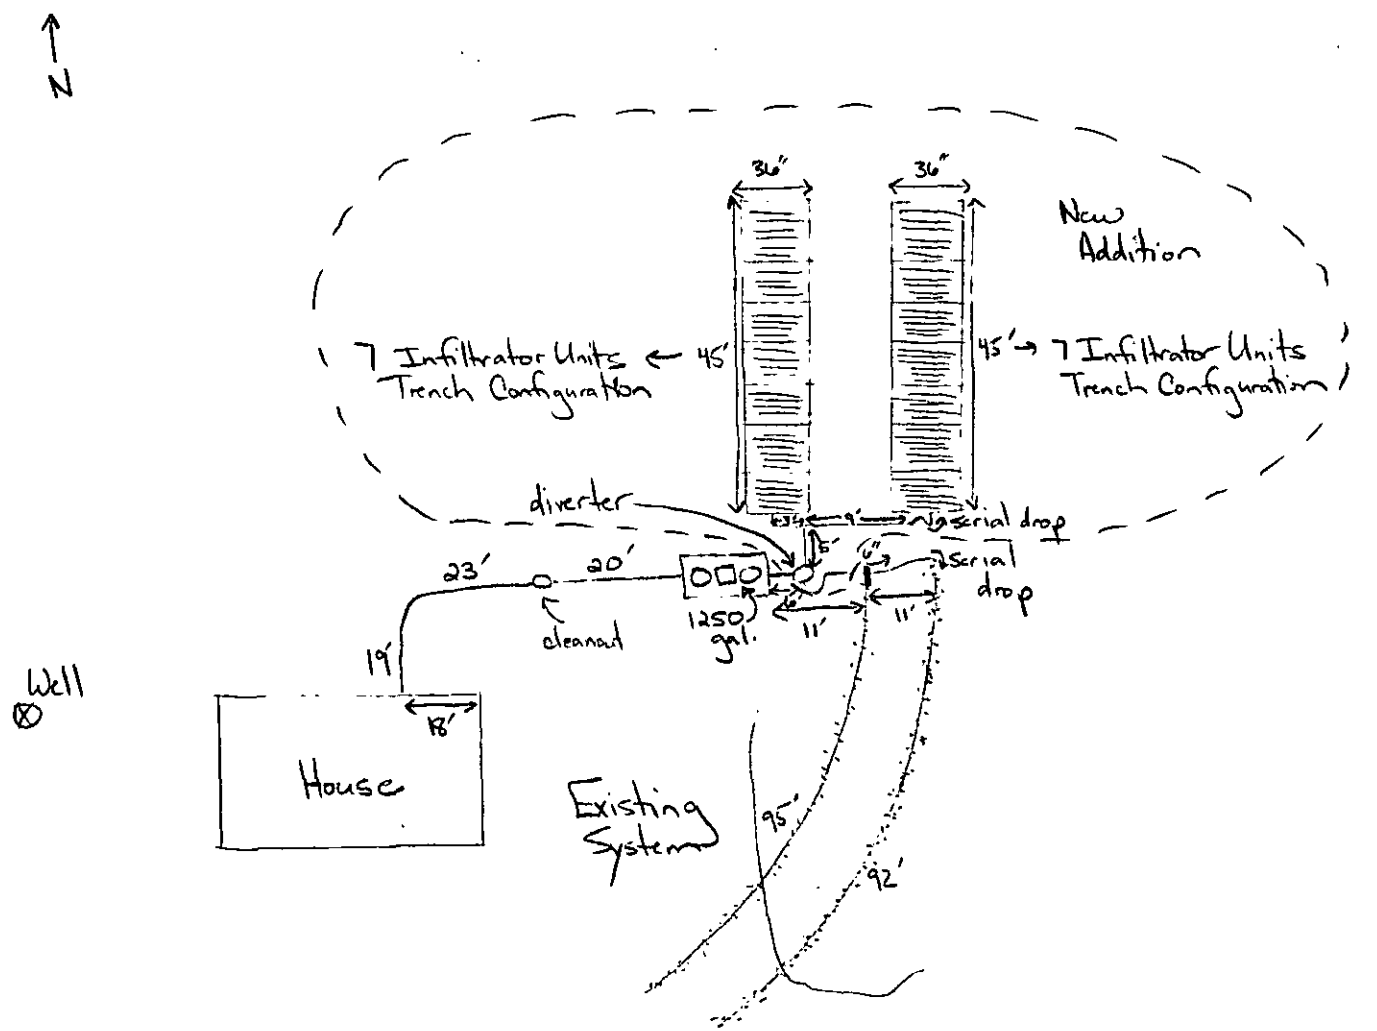 N
36"
36"
New
Addition
7 Infiltrator Units
Trench Configuration
45'
45'
7 Infiltrator Units
Trench Configuration
diverter
9'
serial drop
5'
6"
serial
drop
23'
20'
1250
gal.
cleanout
6'
11'
11'
19'
Well
18'
House
Existing
System
95'
92'